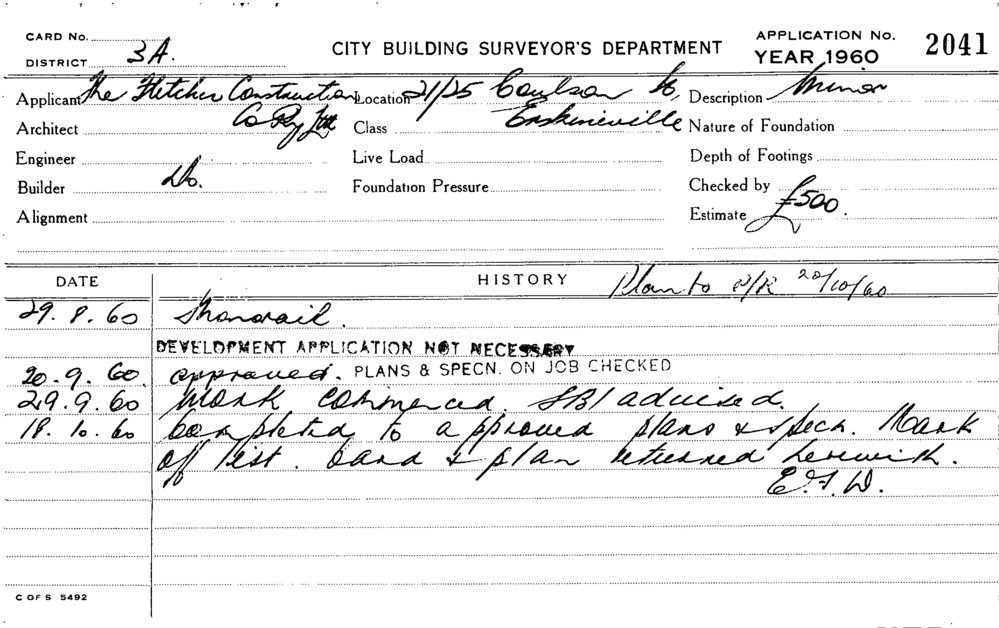 CARD No.
DISTRICT 3A.
CITY BUILDING SURVEYOR'S DEPARTMENT
APPLICATION No. 2041
YEAR 1960
Applicant The Fletcher Construction Location 21/25 Coulson St, Description Minor
Architect Co Pty Ltd Class Erskineville Nature of Foundation
Engineer Live Load Depth of Footings
Builder Do. Foundation Pressure Checked by
Alignment Estimate £500.
DATE HISTORY Plan to R/R 20/10/60
29.8.60
DEVELOPMENT APPLICATION NOT NECESSARY
20.9.60 approved. PLANS & SPECN. ON JOB CHECKED
29.9.60 Work commenced. SBI advised.
18.10.60 Completed to approved plans & specn. Mark
off list. Card & plan returned herewith.
E.F.W.
C OF S 5492